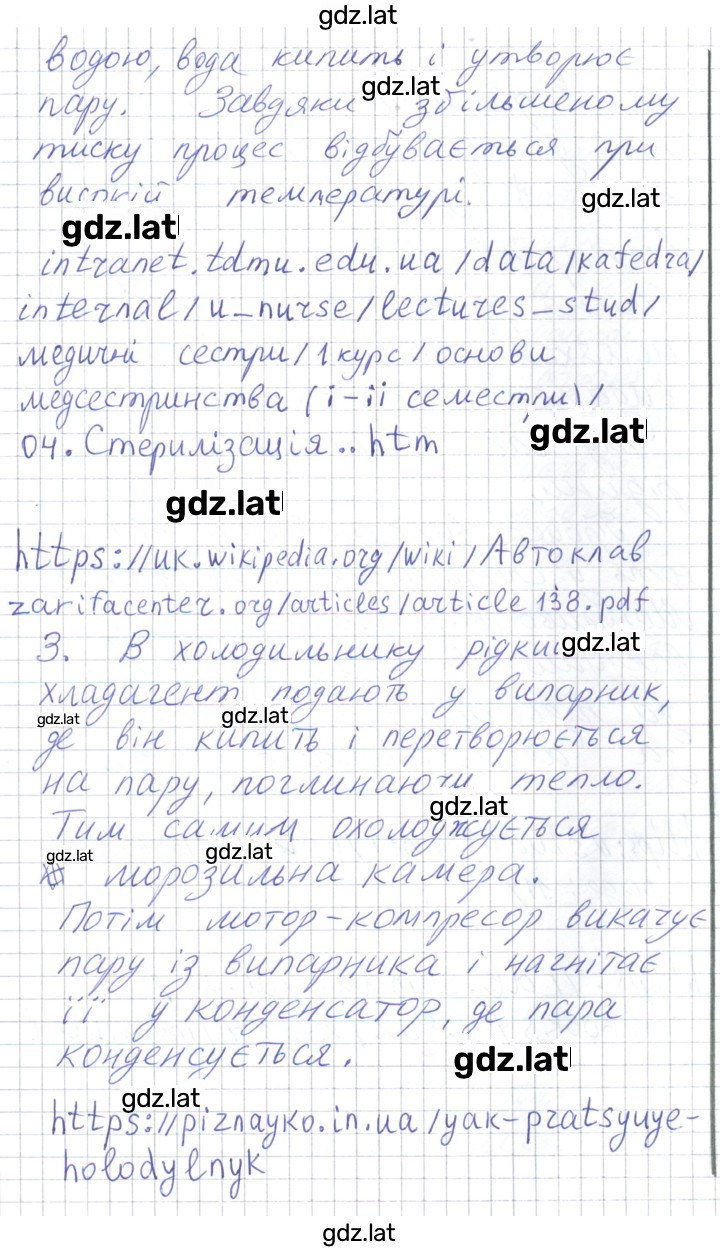 gdz.lat
водою, вода кипить і утворює
gdz.lat
пару. Завдяки збільшеному
тиску процес відбувається при
високій температурі. gdz.lat
gdz.lat
intranet.tdmu.edu.ua/data/kafedra/
internal/u_nurse/lectures_stud/
медичні сестри/1 курс/основи
медсестринства (і-іі семестри)/
04. Стерилізація..htm gdz.lat
gdz.lat
https://uk.wikipedia.org/wiki/Автоклав
zarifacenter.org/articles/article138.pdf
3. В холодильнику рідкий gdz.lat
хладагент подають у випарник,
gdz.lat gdz.lat
де він кипить і перетворюється
на пару, поглинаючи тепло.
gdz.lat
Тим самим охолоджується
gdz.lat gdz.lat
морозильна камера.
Потім мотор-компресор викачує
пару із випарника і нагнітає
її у конденсатор, де пара
конденсується. gdz.lat
gdz.lat
https://piznayko.in.ua/yak-pratsyuye-
holodylnyk
gdz.lat